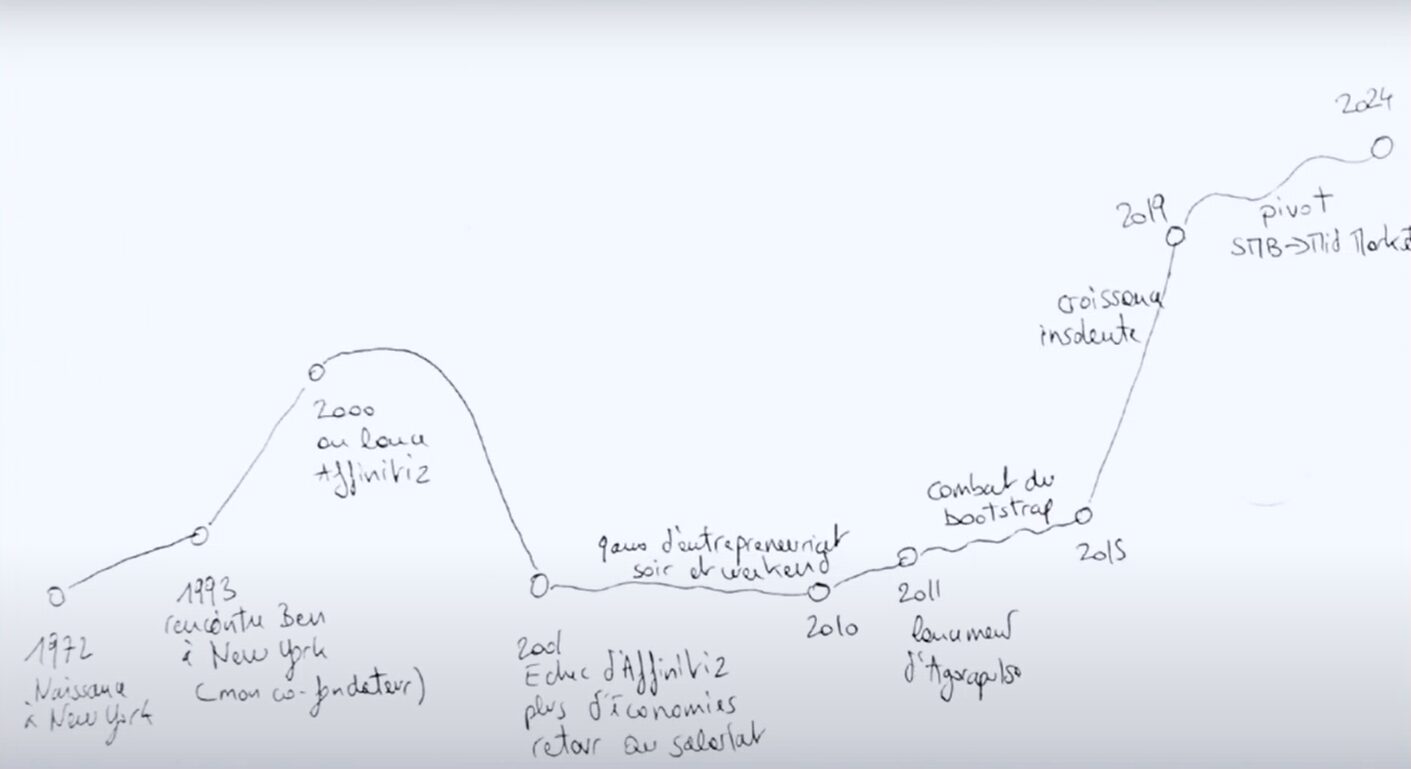 1972
Naissance
à New York
1993
rencontre Ben
à New York
(mon co-fondateur)
2000
on lance
Affinitiz
2001
Echec d'Affinitiz
plus d'économies
retour au salariat
9 ans d'entrepreneuriat
soir et weekend
2010
2011
lancement
d'Agorapulse
combat du
bootstrap
2015
croissance
insolente
2019
pivot
SMB→Mid Market
2024